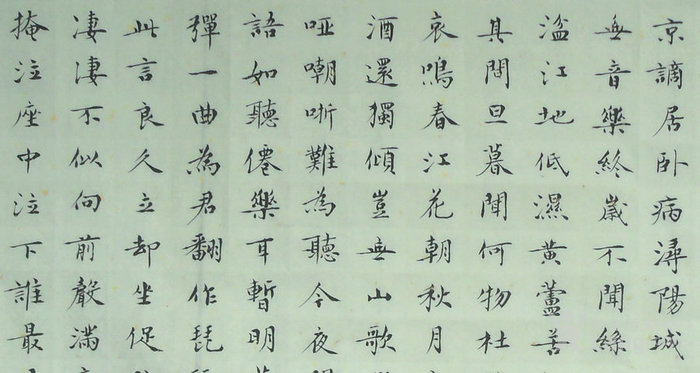 京謫居卧病潯陽城
無音樂終歲不聞絲
湓江地低濕黃蘆苦
其間旦暮聞何物杜
哀鳴春江花朝秋月
酒還獨傾豈無山歌
啞嘲哳難為聽今夜
語如聽僊樂耳暫明
彈一曲為君翻作琵
此言良久立却坐促
淒淒不似向前聲滿
掩泣座中泣下誰最